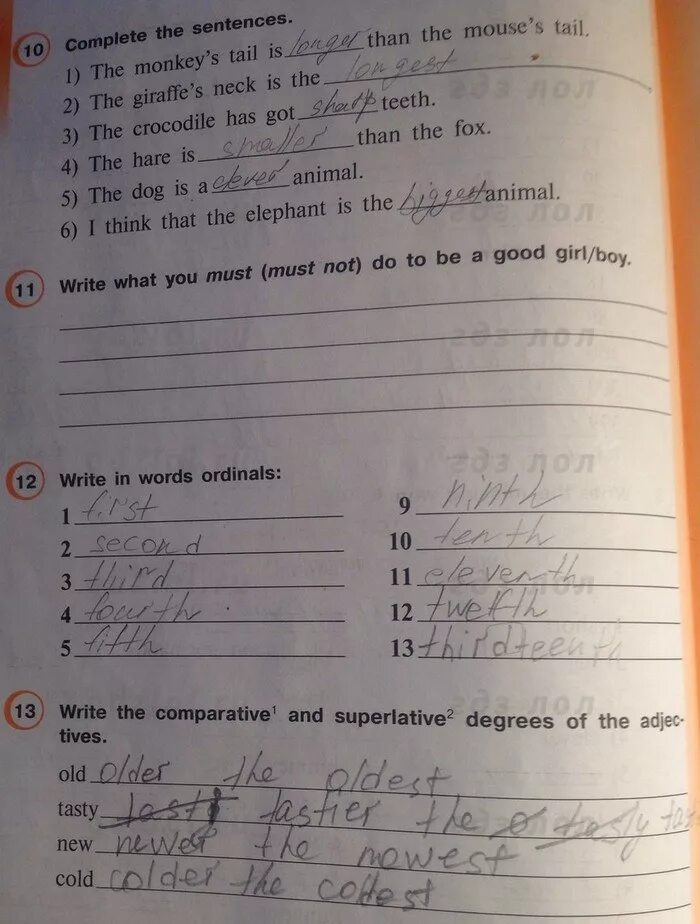 10 Complete the sentences.
1) The monkey's tail is longer than the mouse's tail.
2) The giraffe's neck is the longest
3) The crocodile has got sharp teeth.
4) The hare is smaller than the fox.
5) The dog is a clever animal.
6) I think that the elephant is the biggest animal.
11 Write what you must (must not) do to be a good girl/boy.
12 Write in words ordinals:
1 first
2 second
3 third
4 fourth
5 fifth
9 ninth
10 tenth
11 eleventh
12 twelfth
13 thirdteenth
13 Write the comparative¹ and superlative² degrees of the adjec-
tives.
old older the oldest
tasty tastier the
new newer the newest
cold colder the coldest